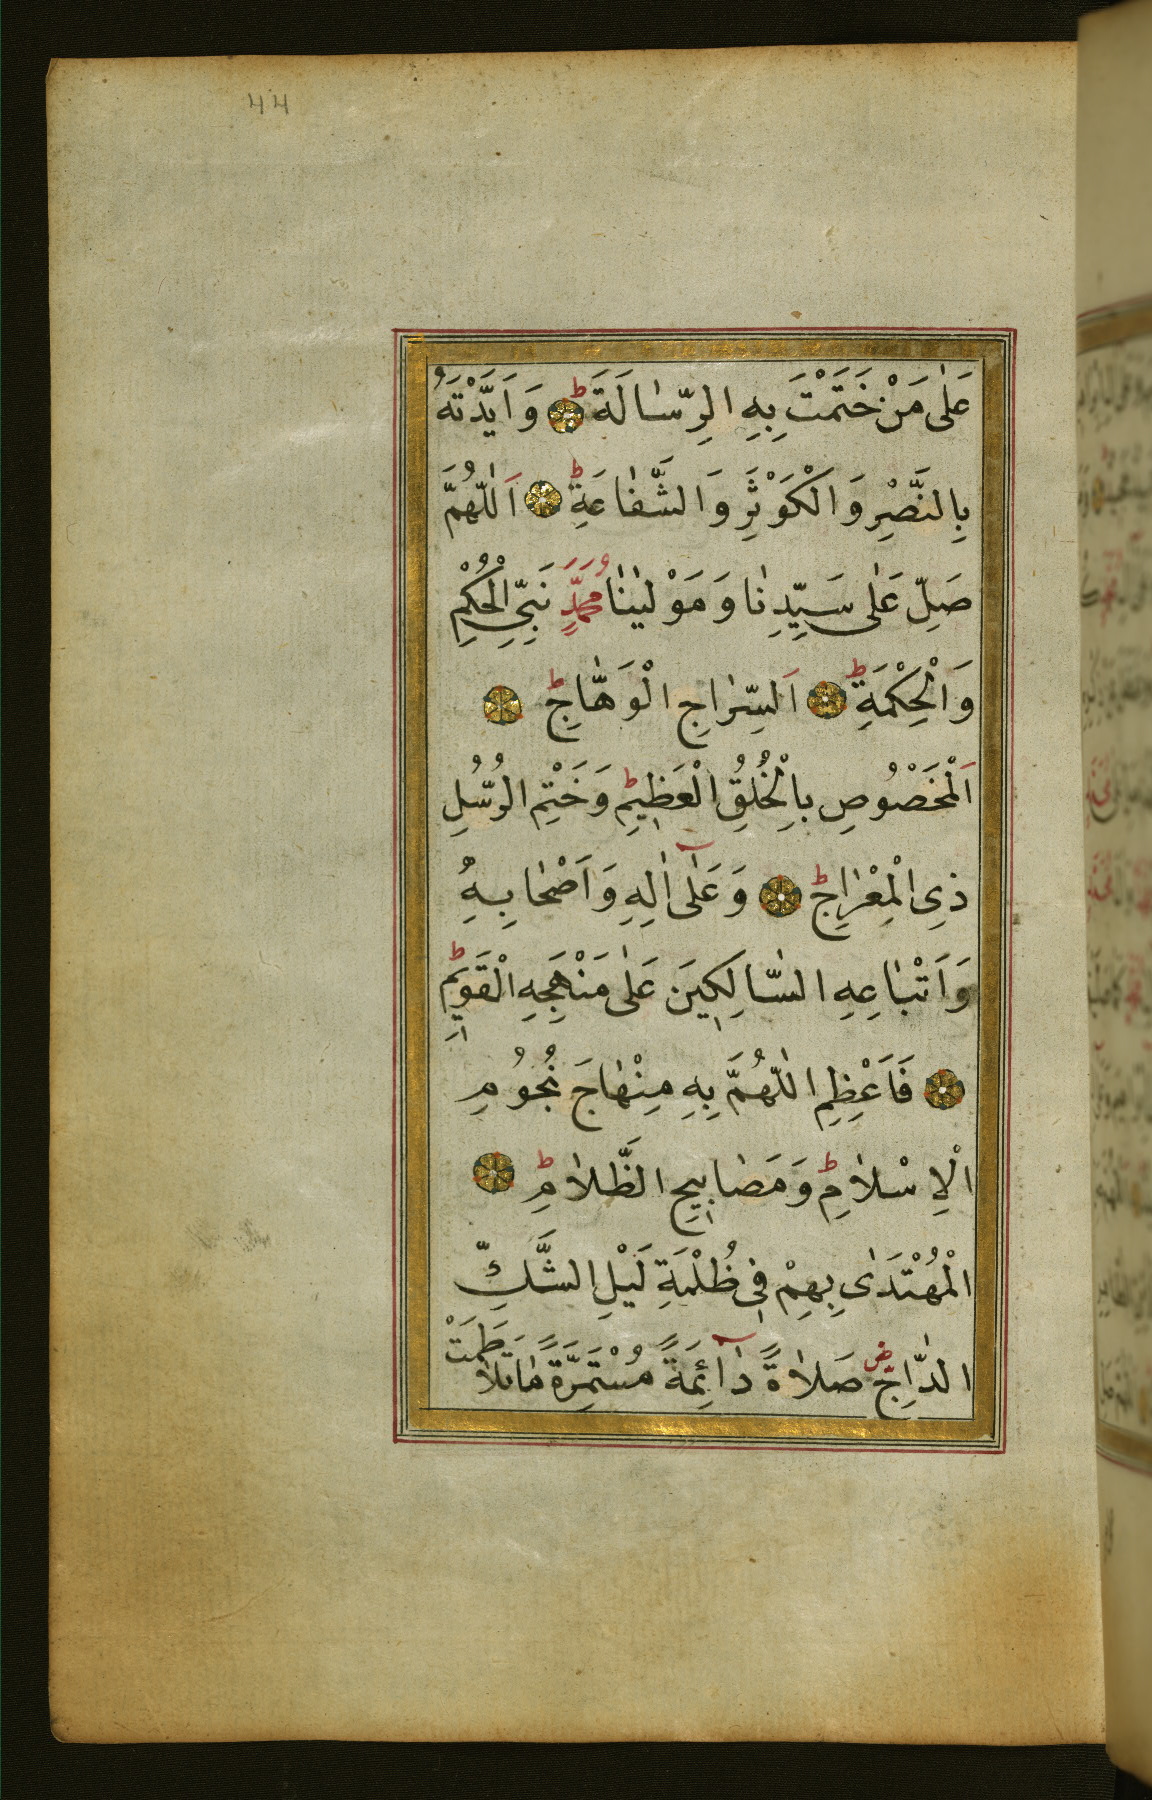 44
عَلٰى مَنْ خَتَمْتَ بِهِ الرِّسٰالَةَ ط وَاَيَّدْتَهُ
بِالنَّصْرِ وَالْكَوْثَرِ وَالشَّفٰاعَةِ ط اَللّٰهُمَّ
صَلِّ عَلٰى سَيِّدِنٰا وَمَوْلٰينٰا مُحَمَّدٍ نَبِيِّ الْحُكْمِ
وَالْحِكْمَةِ ط اَلسِّرٰاجِ الْوَهّٰاجِ ط
اَلْمَخْصُوصِ بِالْخُلُقِ الْعَظٖيمِ ط وَخَتْمِ الرُّسُلِ
ذِى الْمِعْرٰاجِ ط وَعَلٰٓى اٰلِهِ وَاَصْحٰابِهِ
وَاَتْبٰاعِهِ السّٰالِكٖينَ عَلٰى مَنْهَجِهِ الْقَوٖيمِ ط
فَاَعْظِمِ اللّٰهُمَّ بِهِ مِنْهٰاجَ نُجُومِ
الْاِسْلٰامِ ط وَمَصٰابٖيحِ الظَّلٰامِ ط
الْمُهْتَدٰى بِهِمْ فٖى ظُلْمَةِ لَيْلِ الشَّكِّ
الدّٰاجِّ ص صَلٰاةً دٰٓائِمَةً مُسْتَمِرَّةً مٰا تَلٰاطَمَتْ